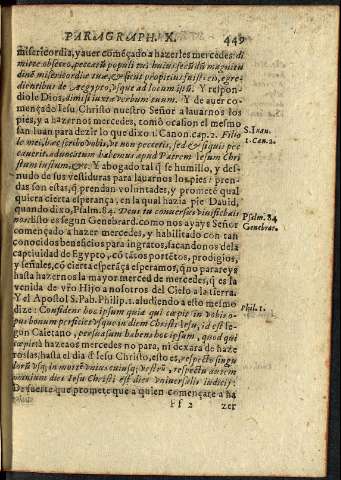 PARAGRAPH. X. 449
misericordia, y auer començado a hazerles mercedes: di
mitte obsecro, peccatũ populi tui huius secũdũ magnitu
dinẽ misericordiæ tuæ, & sicut propitius fuisti eis, egre
dientibus de Aegypto, vsque ad locum istũ. Y respon
diole Dios, dimisi iuxta verbum tuum. Y de auer co-
mençado Iesu Christo nuestro Señor a lauarnos los
pies, y a hazernos mercedes, tomò ocasion el mesmo
san Iuan para dezir lo que dixo 1. Canon. cap. 2. Filio
li mei, hæc scribo vobis, vt non peccetis, sed & si quis pec
cauerit, aduocatum habemus apud Patrem Iesum Chri
stum iustum, &c. Y abogado tal q̃ se humillo, y des-
nudo de sus vestiduras para lauarnos los pies? pren-
das son estas, q̃ prendan voluntades, y promete qual
quiera cierta esperança, en la qual hazia pie Dauid,
quando dixo, Psalm. 84. Deus tu conuersus viuificabis
nos: Esto es segun Genebrard. como nos ayays Señor
començado a hazer mercedes, y habilitado con tan
conocidos beneficios para ingratos, sacandonos de la
captiuidad de Egypto, cõ tãtos portẽtos, prodigios,
y señales, cõ cierta esperãça esperamos, q̃ no parareys
hasta hazernos la mayor merced de mercedes, q̃ es la
venida de vr̃o Hijo a nosotros del Cielo a la tierra.
Y el Apostol S. Pab. Philip. 1. aludiendo a esto mesmo
dize: Confidens hoc ipsum quia qui cœpit in vobis o-
pus bonum perficiet vsque in diem Christi Iesu, id est se-
gun Caietano, persuasum habens hoc ipsum, quod qui
cœpit à hazeros mercedes no para, ni dexara de haze
roslas, hasta el dia d̃ Iesu Christo, esto es, respectu singu
lorũ vsq; in mortẽ vnius cuiusq; vestrũ, respectu autem
omnium dies Iesu Christi est dies vniuersalis iudicij:
De suerte que promete que a quien començare a ha
Ff 2 zer
S. Iuan.
1. Can. 2.
Psalm. 84
Genebrar.
Phil. 1.